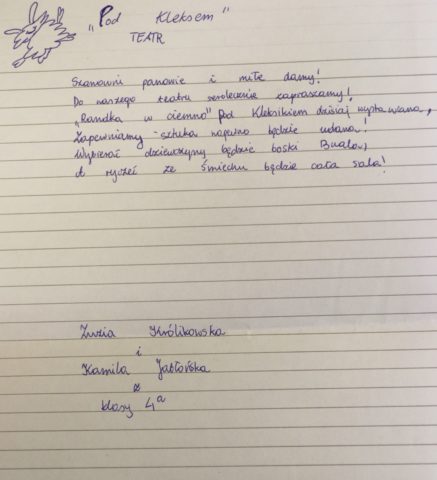 „Pod Kleksem"
TEATR
Szanowni panowie i miłe damy!
Do naszego teatru serdecznie zapraszamy!
„Randka w ciemno" Pod Kleksikiem dzisiaj wystawiana,
Zapewniamy - sztuka napewno będzie udana!
Wybierać dziewczynę będzie boski Bualo,
A ryczeć ze śmiechu będzie cała sala!
Zuzia Królikowska
i
Kamila Jabłońska
z
klasy 4a